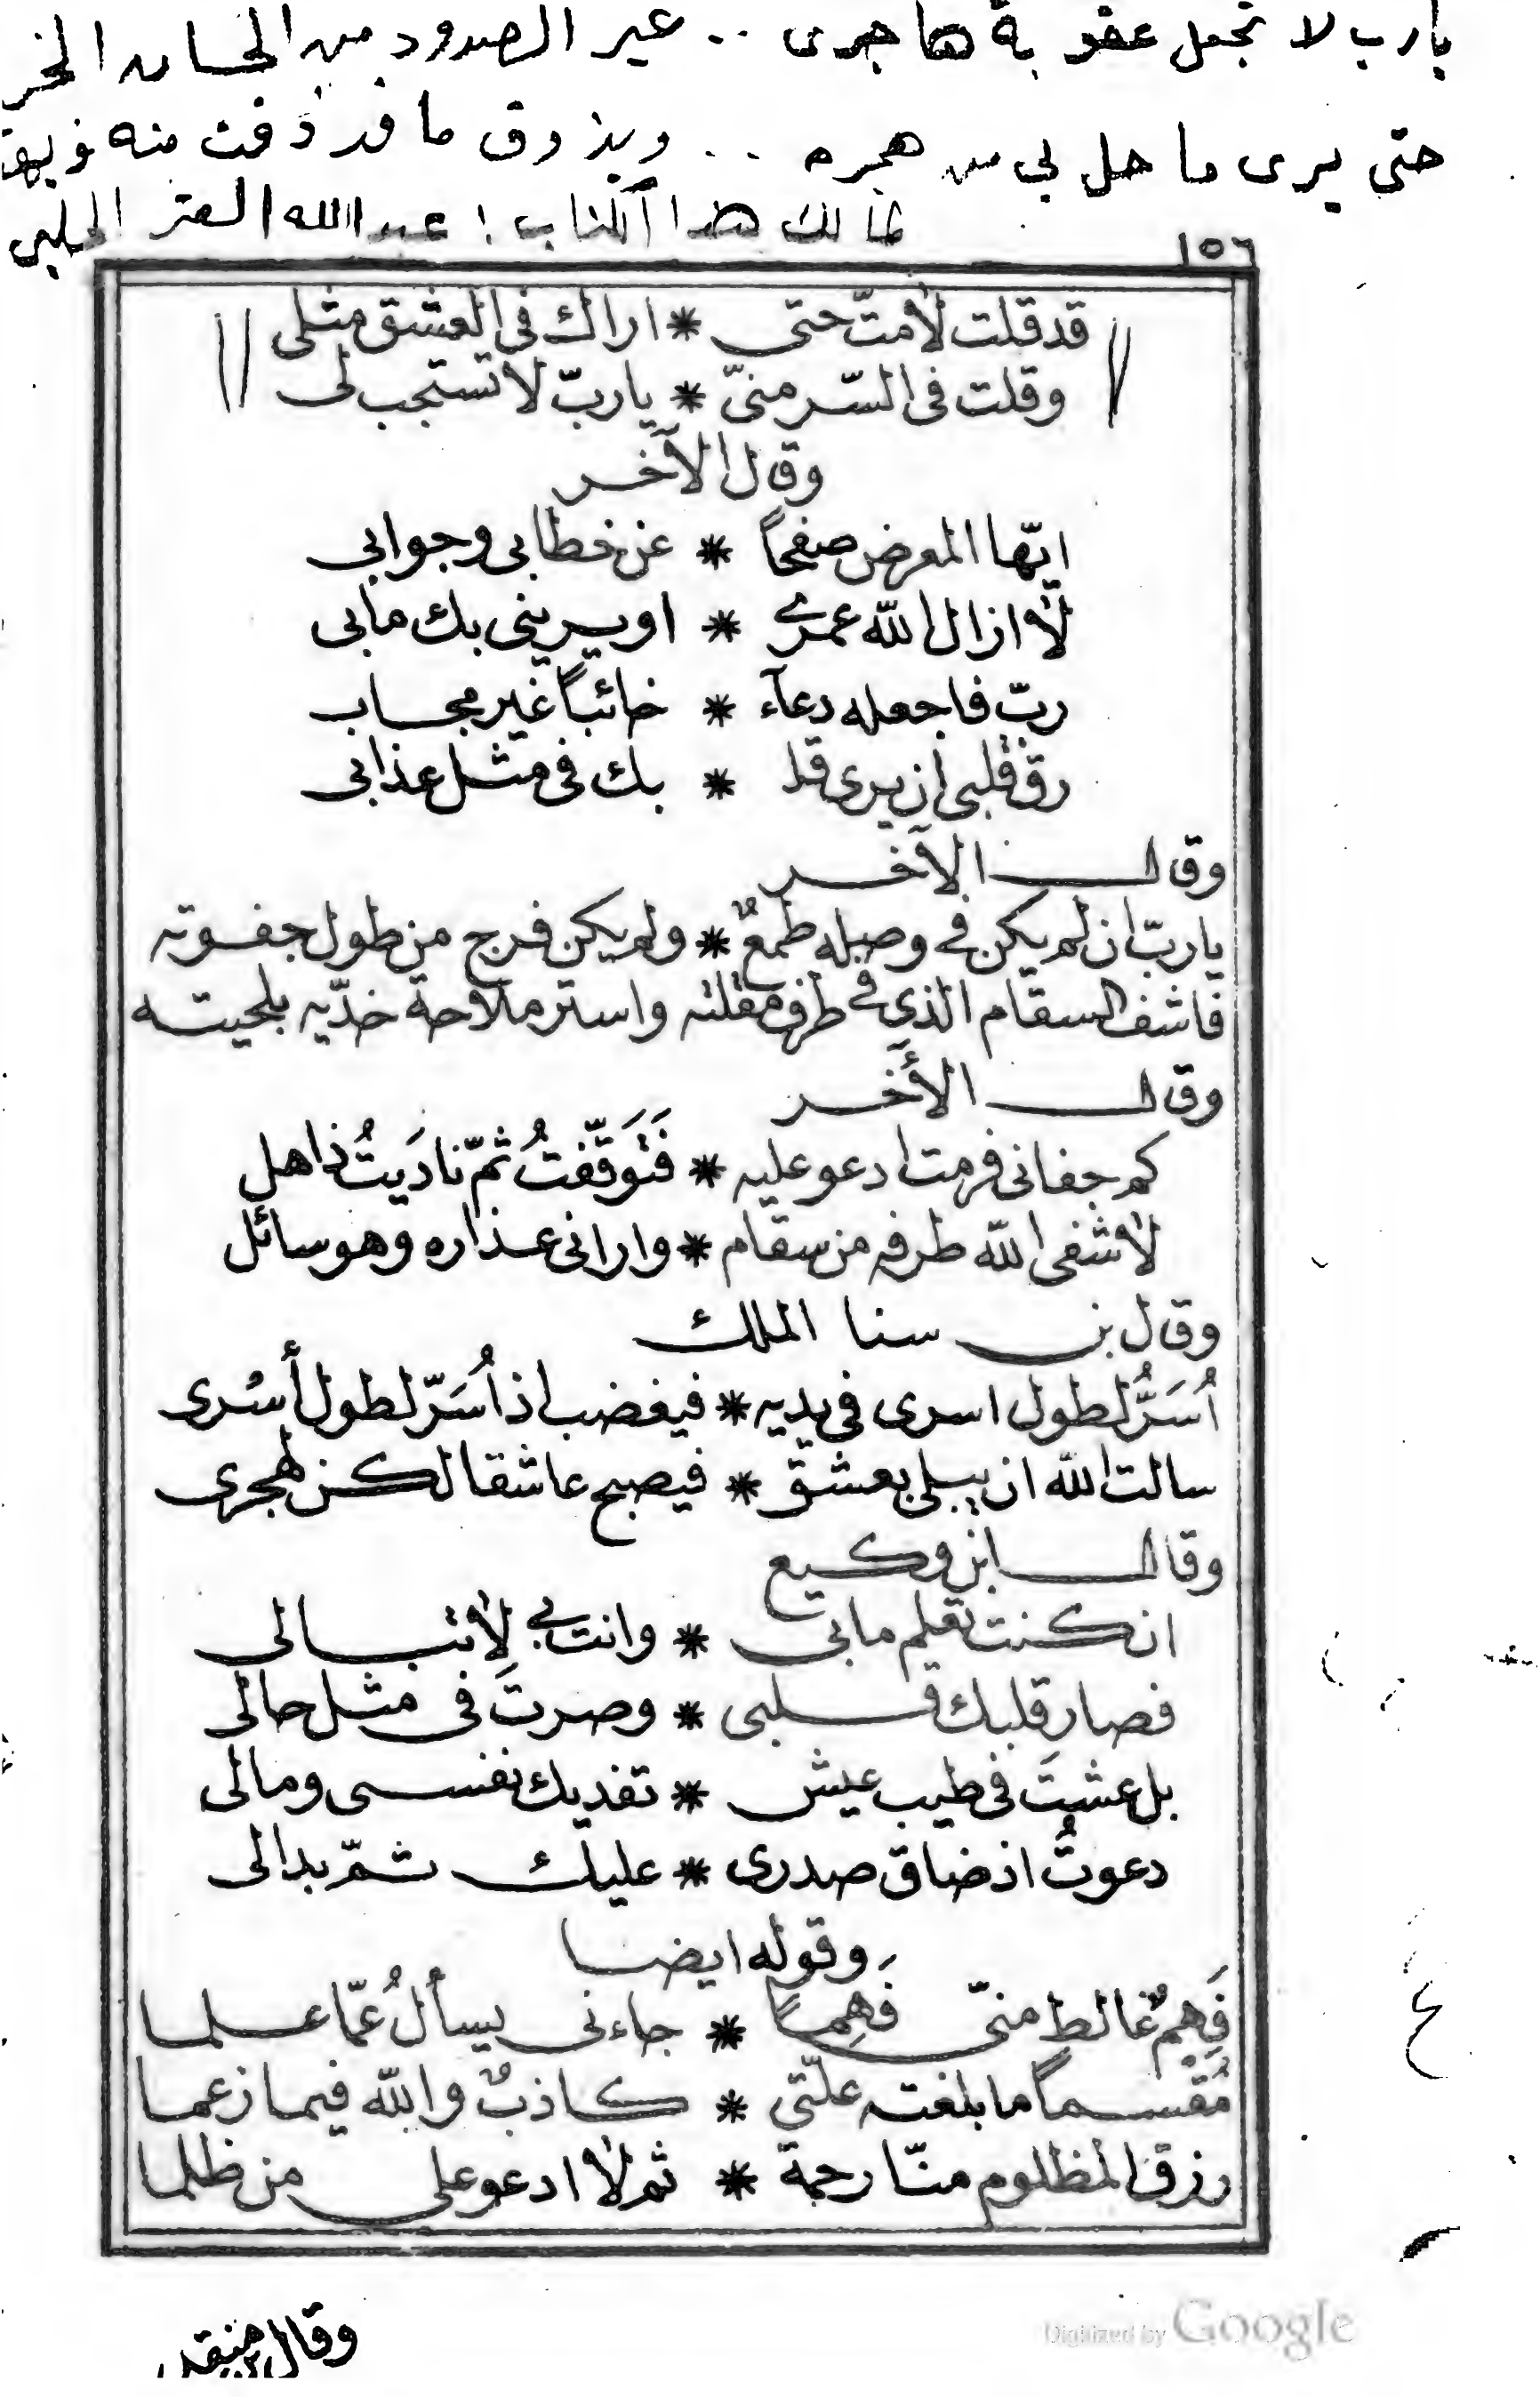 يارب لا تجعل عقوبة هاجرى .. غير الصدود من الحسان الخر
حتى يرى ما حل بي من هجره .. ويذوق ما قد ذقت منه
لمالك هذا الكتاب : عبد الله الحلبي
١٥٦
قد قلت لامتّ حتى * اراك فى العشق مثلى
وقلت فى السّر منىّ * ياربّ لا تستجب لى
وقال الآخر
ايّها المعرض صفحاً * عن خطابى وجوابى
لا ازال الله عمرى * او يرينى بك مابى
ربّ فاجعله دعآء * خائباً غير مجاب
رقّ قلبى ان يرى قلـ * ـبك فى مثل عذابى
وقال الآخر
ياربّ ان لم يكن فى وصله طمعٌ * ولم يكن فرج من طول جفوته
فاشف السقام الذى فى طرف مقلته واستر ملاحة خدّيه بلحيته
وقال الأخر
كم جفانى فرمت ادعو عليه * فَتَوَقّفتُ ثمّ نادَيتُ ذاهل
لا شفى الله طرفه من سقام * وارانى عذاره وهو سائل
وقال بن سنا الملك
اُسَرُّ لطول اسرى فى يديه * فيغضب اذ اُسَرّ لطول أسرى
سالت الله ان يبلى بعشق * فيصبح عاشقا لكن لهجرى
وقال ابن وكيع
ان كنت تعلم مابى * وانت بى لا تبالى
فصار قلبك قلبى * وصرتَ فى مثل حالى
بل عشتَ فى طيب عيش * تفديك نفسى ومالى
دعوتُ اذ ضاق صدرى * عليك ثمّ بدالى
وقوله ايضا
فَهِمٌ غالط منّى فَهِما * جاءنى يسألُ عمّا علما
مُقْسماً ما بلغته علّتى * كاذبٌ والله فيما زعما
رزق المظلوم منّا رحمة * ثم لا ادعو على من ظلما
وقال
Digitized by Google